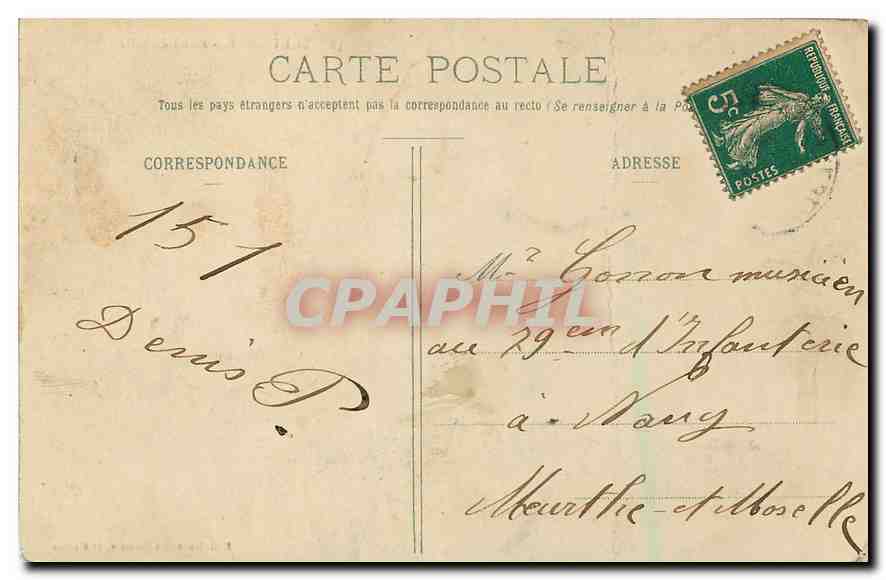 CARTE POSTALE
Tous les pays étrangers n'acceptent pas la correspondance au recto (Se renseigner à la Po
CORRESPONDANCE
ADRESSE
REPUBLIQUE FRANÇAISE
5c
POSTES
151
Denis P.
Mr Gonon musicien
au 29em d'Infanterie
à Nancy
Meurthe-et-Moselle
CPAPHIL